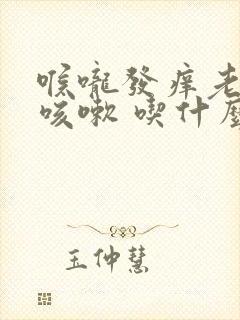 喉嚨發癢老
咳嗽 喫什麼
王仲慧